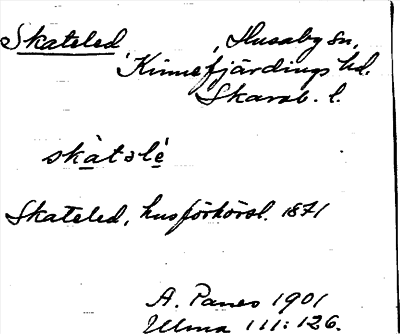 Skateled, Husaby sn,
Kinnefjärdings hd.
Skarab. l.
skàtəlé
Skateled, husförhörsl. 1871
A. Panes 1901
Ullma 111:126.